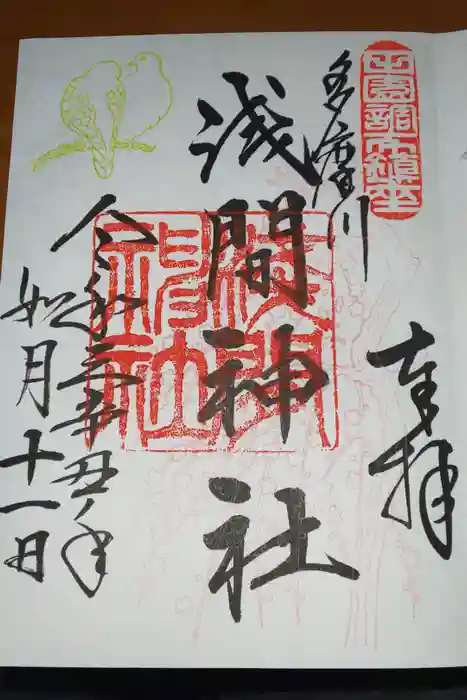 奉拝
田園調布鎮座
多摩川
浅間神社
浅間
神社
令和三辛丑ノ年
如月十一日